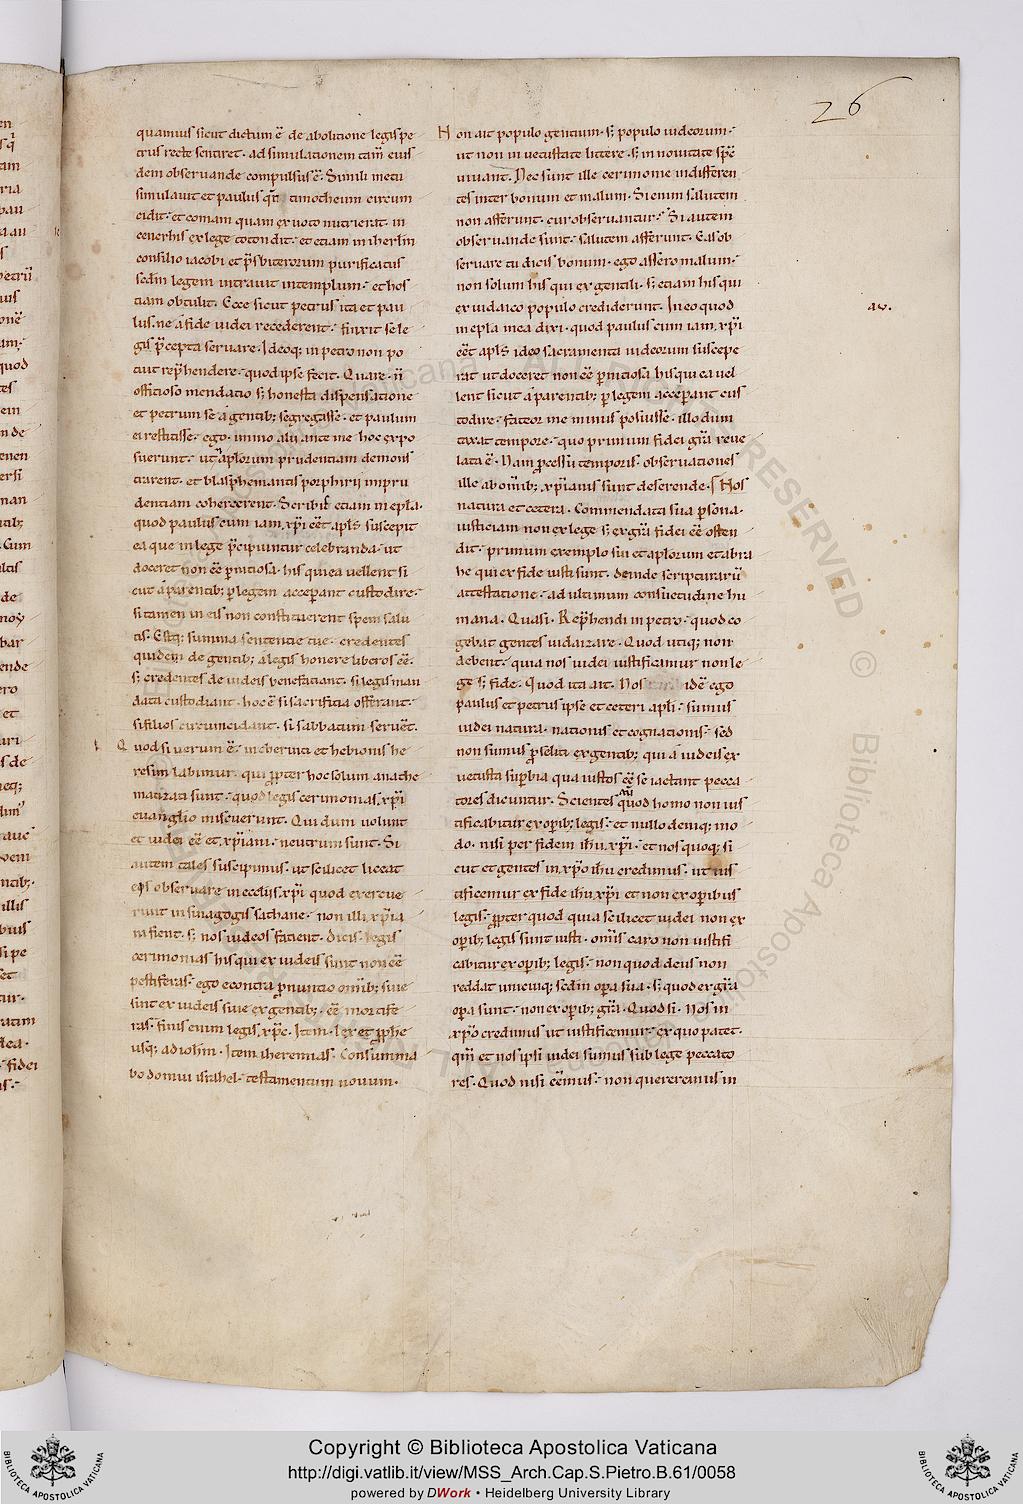 26
quamuis sicut dictum ē de abolitione legis pe
trus recte sentiret · ad simulationem tam̄ eius
dem obseruande compulsus ē · Simili metu
simulauit et paulus qn̄ timotheum circum
cidit · et comam quam ex uoto nutrierat · in
cencrhis ex lege totondit · et etiam in iherl̄m
consilio iacobi et p̄sbiterorum purificatus
sc̄dm legem intrauit in templum · et hos
tiam obtulit · Ecce sicut petrus ita et pau
lus · ne a fide iudei recederent · finxit se le
gis p̄cepta seruare · Ideoq; in petro non po
tuit rep̄hendere · quod ipse fecit · Quare · ii
officioso mendatio sꝫ honesta dispensatione
et petrum se a gentib; segregasse · et paulum
ei restitisse · ego immo alii ante me hoc expo
suerunt · ut apl̄orum prudentiam demons
trarent · et blasphemantis porphirii impru
dentiam cohercerent · Scribis etiam in ep̄la ·
quod paulus cum iam xp̄i eēt apl̄s suscepit
ea que in lege p̄cipiuntur celebranda · ut
doceret non eē p̄nitiosa · his qui ea uellent si
cut a parentib; p̄ legem acceperant custodire ·
si tamen in eis non constituerent spem salu
tis · Estq; summa sententie tue · credentes
quidem de gentib; a legis honere liberos eē ·
sꝫ credentes de iudeis benefatiant · si legis man
data custodiant · hoc ē si sacrificia offerant ·
si filios circumcidant · si sabbatum seruēt ·
Quod si uerum ē · in cherinti et hebionis he
resim labimur · qui p̄pter hoc solum anathe
matizati sunt · quod legis cerimonias xp̄i
euanglio miscuerunt · Qui dum uolunt
et iudei eē et xp̄iani · neutrum sunt · Si
autem tales suscipimus · ut scilicet liceat
eis obseruare in ecclīs xp̄i quod exercue
runt in sinagogis sathane · non illi xp̄ia
ni fient · sꝫ nos iudeos facient · Dicis · legis
cerimonias his qui ex iudeis sunt non eē
pestiferas · ego econtra p̄nuntio om̄ib; siue
sint ex iudeis siue ex gentib; · eē mortife
ras · finis enim legis xp̄c · Item · lex et p̄phe
usq; ad ioh̄m · Item iheremias · Consumma
bo domui isrāhel · testamentum nouum ·
Non ait populo gentium · sꝫ populo iudeorum ·
ut non in uetustate littere · sꝫ in nouitate sp̄c
uiuant · Nec sunt ille cerimonie indifferen
tes inter bonum et malum · Si enim salutem
non afferunt · cur obseruantur · Si autem
obseruande sunt · salutem afferunt · Eas ob
seruare tu dicis bonum · ego assero malum ·
non solum his qui ex gentili · sꝫ etiam his qui
ex iudaico populo crediderunt · In eo quod
in ep̄la mea dixi · quod paulus cum iam xp̄i
eēt apl̄s ideo sacramenta iudeorum suscepe
aū.
rat ut doceret non eē p̄nitiosa his qui ea uel
lent sicut a parentib; p̄ legem acceperant cus
todire · fateor me minus posuisse · illo dum
taxat tempore · quo primum fidei gr̄a reue
lata ē · Nam p̄cessu temporis · obseruationes
ille ab om̄ib; xp̄ianis sunt deserende · Nos
natura et cetera · Commendata sua p̄sona ·
iusticiam non ex lege sꝫ ex gr̄a fidei eē osten
dit · primum exemplo sui et apl̄orum et abra
he qui ex fide iusti sunt · deinde scripturarū
attestatione · ad ultimum consuetudine hu
mana · Quasi · Rep̄hendi in petro · quod co
gebat gentes iudaizare · Quod utiq; non
debent · quia nos iudei iustificamur non le
ge sꝫ fide · Quod ita ait · Nos idē ego
paulus et petrus ipse et ceteri apl̄i · sumus
iudei natura · nationis et cognationis · sed
non sumus p̄seliti ex gentib; qui a iudeis ex
uetusta sup̄bia qua iustos eē se iactant pecca
tores dicuntur · Scientes quod homo non ius
tificabitur ex op̄ib; legis · et nullo deniq; mo
do · nisi per fidem ih̄u xp̄i · et nos quoq; si
cut et gentes in xp̄o ih̄u credimus · ut ius
tificemur ex fide ih̄u xp̄i et non ex operibus
legis · p̄pter quod quia scilicet iudei non ex
op̄ib; legis sunt iusti · om̄is caro non iustifi
cabitur ex op̄ib; legis · non quod deus non
reddat unicuiq; sc̄dm op̄a sua · sꝫ quod ex gr̄a
op̄a sunt · non ex op̄ib; gr̄a · Quod si · Nos in
xp̄o credimus ut iustificemur · ex quo patet ·
qm̄ et nos ipsi iudei sumus sub lege peccato
res · Quod nisi eēmus · non quereremus in
Copyright © Biblioteca Apostolica Vaticana
http://digi.vatlib.it/view/MSS_Arch.Cap.S.Pietro.B.61/0058
powered by DWork • Heidelberg University Library